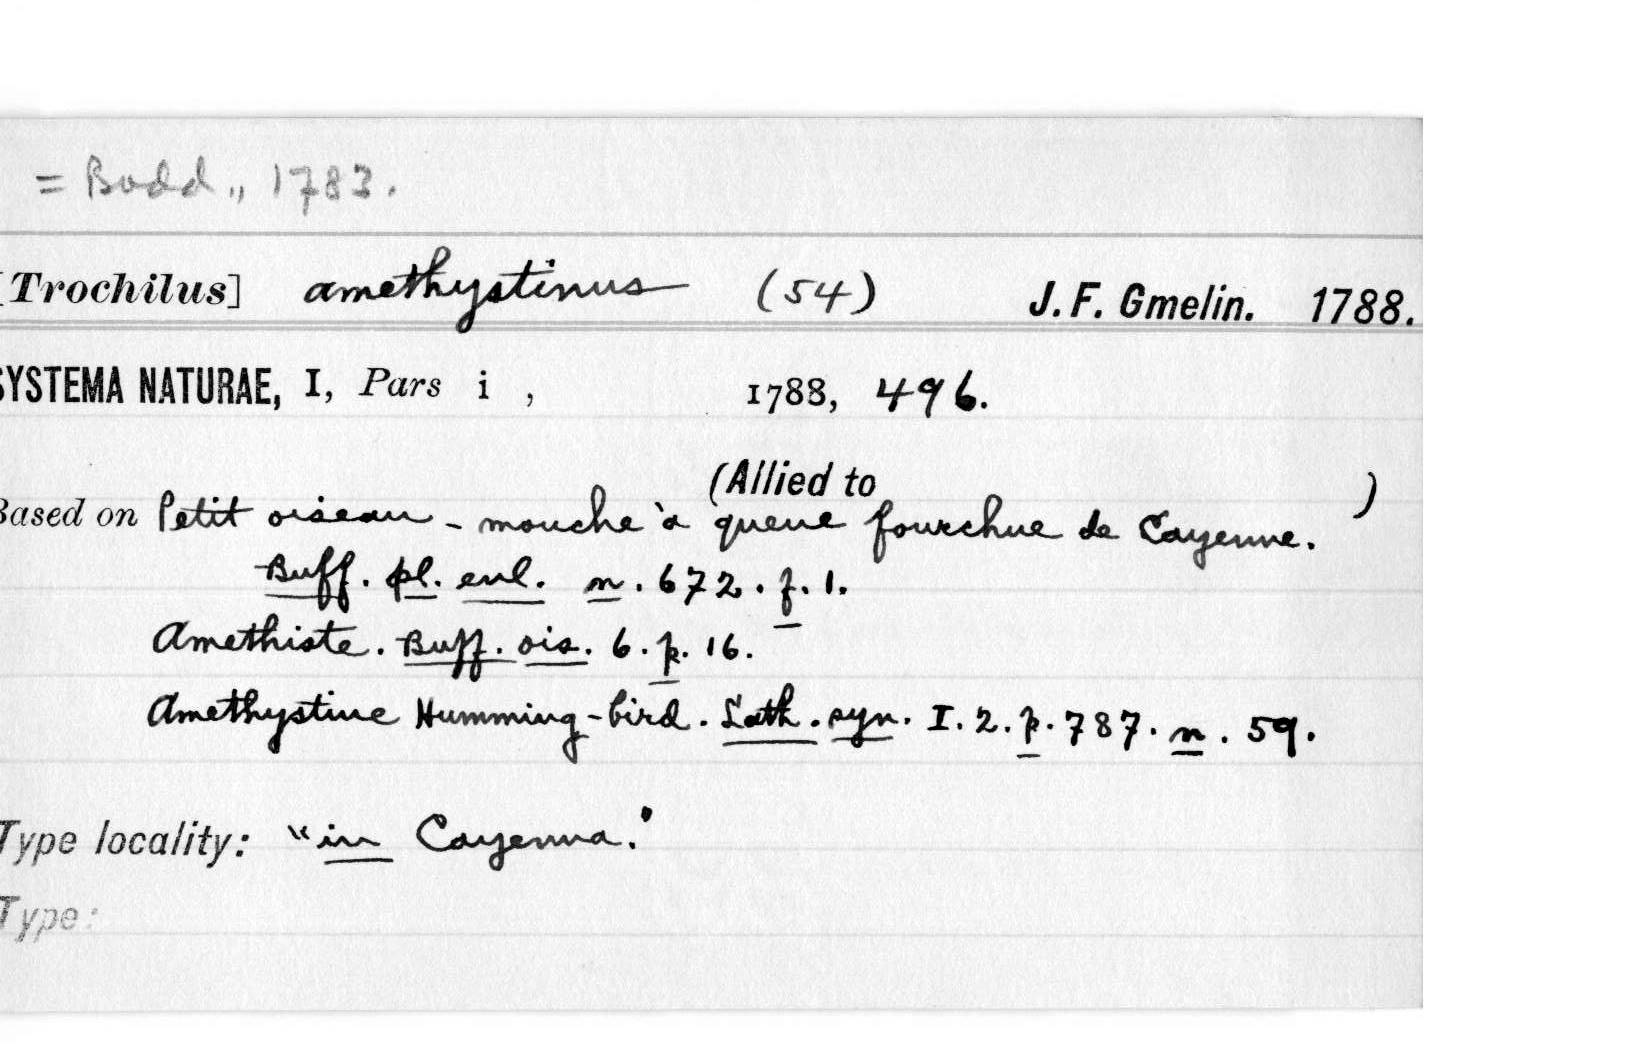 = Bodd., 1783.
[Trochilus] amethystinus (54) J. F. Gmelin. 1788.
SYSTEMA NATURAE, I, Pars i , 1788, 496.
(Allied to )
Based on Petit oiseau-mouche à queue fourchue de Cayenne.
Buff. pl. enl. n. 672. f. 1.
Amethiste. Buff. ois. 6. p. 16.
Amethystine Humming-bird. Lath. syn. I. 2. p. 787. n. 59.
Type locality: "in Cayenna."
Type: